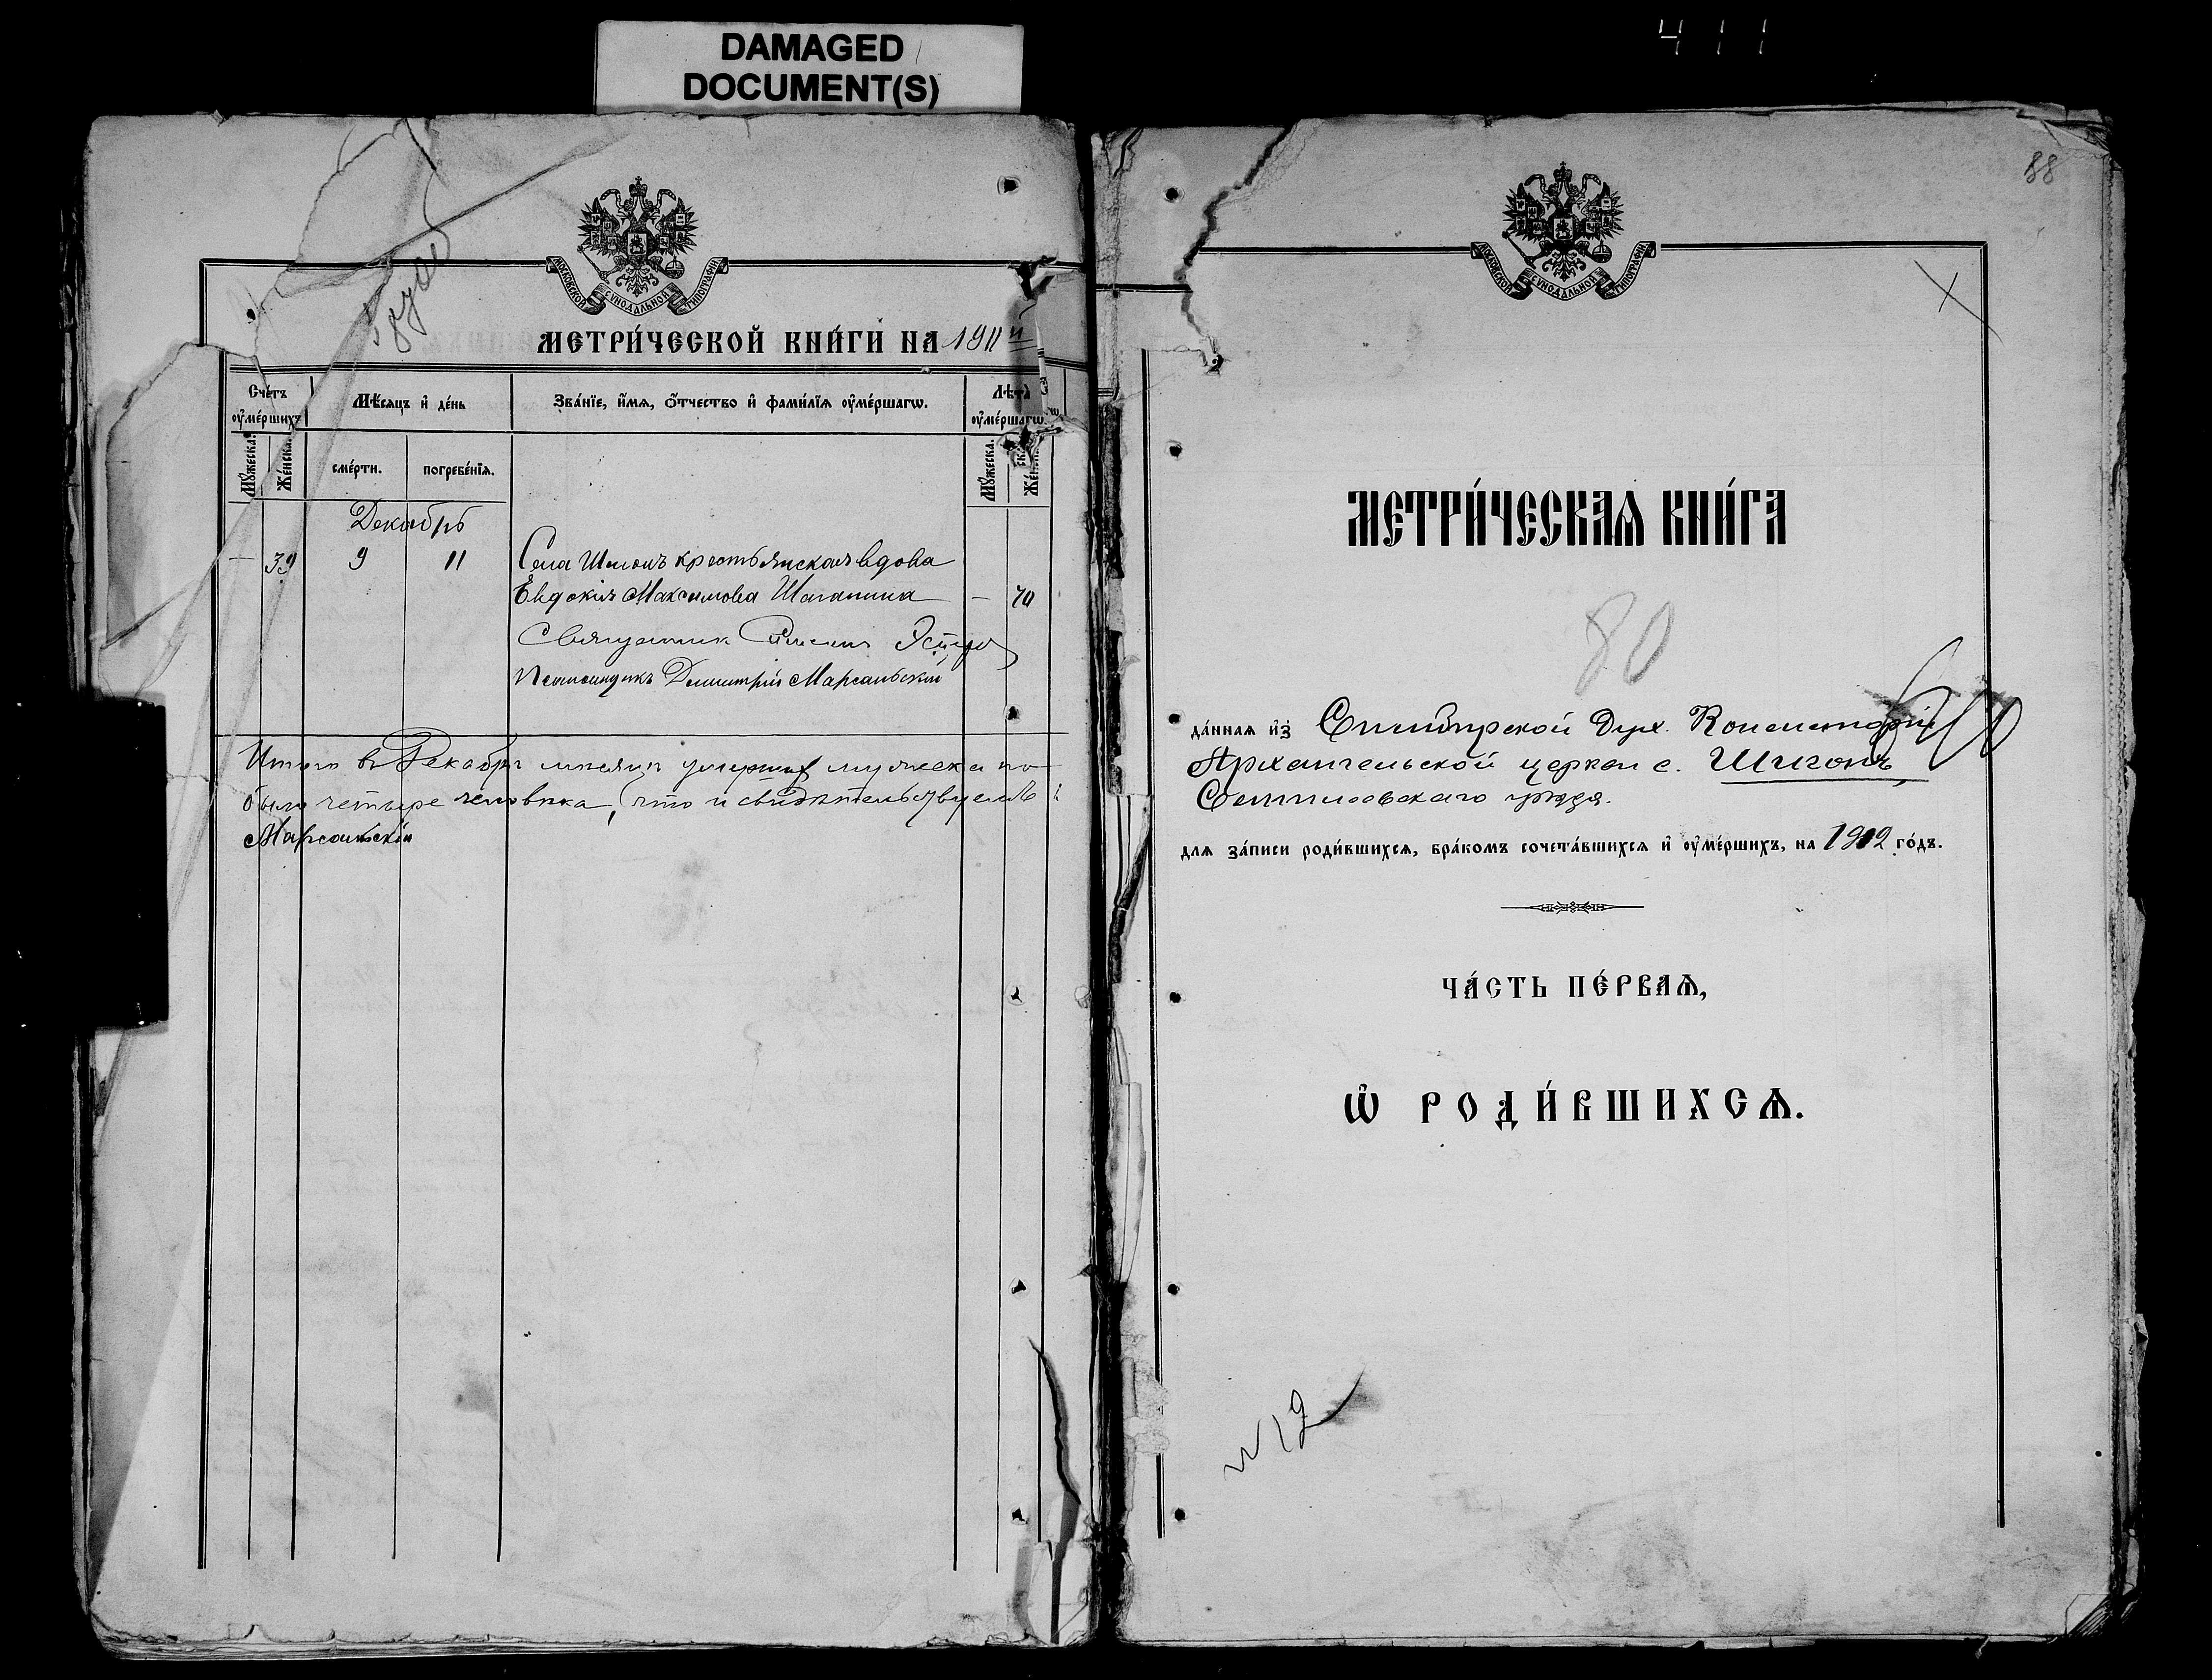 DAMAGED
DOCUMENT(S)
411
МОСКОВСКОЙ СУНОДАЛЬНОЙ ТИПОГРАФІИ
МЕТРИ́ЧЕСКОЙ КНИ́ГИ НА 1911 й
Сче́тъ оу҆ме́ршихъ
Мѣ́сяцъ и҆ де́нь
Зва́нїе, и҆́мѧ, ѻ҆́тчество и҆ фами́лїѧ оу҆ме́ршагѡ.
Лѣ́та оу҆ме́ршагѡ.
Мꙋ́жеска.
Же́нска.
сме́рти.
погребе́нїѧ.
Мꙋ́жеска.
Декабрь
— 39 9 11 Села Шигонъ крестьянская вдова
Евдокія Максимова — 70
Священник
Псаломщикъ Димитрій Марсальскій
Итого въ Декабрѣ мѣсяцѣ умерших мужеска по-
было четыре человѣка, что и свидѣтельствуемъ
Марсальскій
88
МОСКОВСКОЙ СУНОДАЛЬНОЙ ТИПОГРАФІИ
МЕТРИ́ЧЕСКАѦ КНИ́ГА
80
да́ннаѧ и҆з̾ Симбирской Дух. Консисторіи
Архангельской церкви с. Шигонъ,
Сенгилеевскаго уѣзда.
длѧ за́писи роди́вшихсѧ, бра́комъ сочета́вшихсѧ и҆ оу҆ме́ршихъ, на 1912 го́дъ.
ЧА́СТЬ ПЕ́РВАѦ,
Ѡ҆ РОДИ́ВШИХСѦ.
№ 12